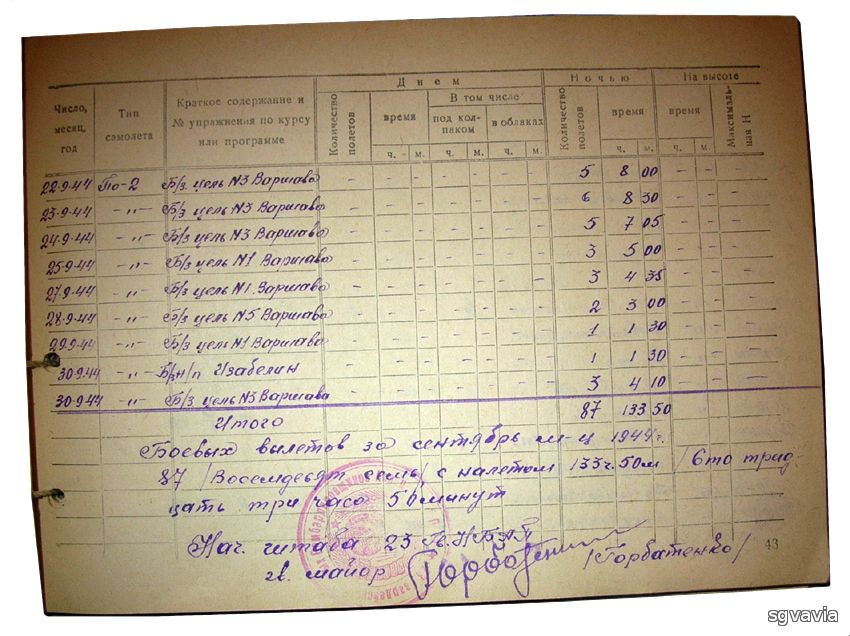 Днем Ночью На высоте
Число, месяц, год Тип самолета Краткое содержание и № упражнения по курсу или программе Количество полетов время В том числе под колпаком в облаках Количество полетов время время Максимальная Н
ч. м. ч. м. ч. м. ч. м. ч. м.
22.9.44 По-2 Б/з цель №3 Варшава - - - - - - - 5 8 00 - - -
23.9.44 -"- Б/з цель №3 Варшава - - - - - - - 6 8 30 - - -
24.9.44 -"- Б/з цель №3 Варшава - - - - - - - 5 7 05 - - -
25.9.44 -"- Б/з цель №1 Варшава - - - - - - - 3 5 00 - - -
27.9.44 -"- Б/з цель №1 Варшава - - - - - - - 3 4 35 - - -
28.9.44 -"- Б/з цель №5 Варшава - - - - - - - 2 3 00 - - -
29.9.44 -"- Б/з цель №1 Варшава - - - - - - - 1 1 30 - - -
30.9.44 -"- Б/з н/п Изабелин - - - - - - - 1 1 30 - - -
30.9.44 -"- Б/з цель №3 Варшава - - - - - - - 3 4 10 - - -
Итого 87 133 50
Боевых вылетов за сентябрь м-ц 1944г.
87 /Восемдесят семь/ с налетом 133ч. 50м /Сто трид-
цать три часа 50 минут
Нач. штаба 23 Гв.НБАП
гв. майор Горбатенко /Горбатенко/
43
sgvavia